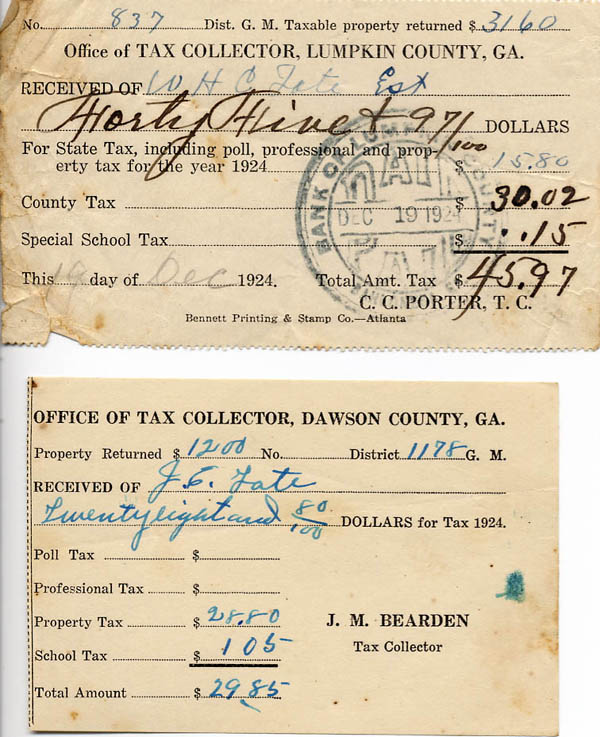 No. 837 Dist. G. M. Taxable property returned $ 3160
Office of TAX COLLECTOR, LUMPKIN COUNTY, GA.
RECEIVED OF W H C Tate Est
Forty Five + 97/100 DOLLARS
For State Tax, including poll, professional and prop-
erty tax for the year 1924 $ 15.80
County Tax $ 30.02
Special School Tax $ .15
This 19 day of Dec 1924. Total Amt. Tax $ 45.97
C. C. PORTER, T. C.
Bennett Printing & Stamp Co.—Atlanta
BANK OF COUNTY
PAID
DEC 19 1924
OFFICE OF TAX COLLECTOR, DAWSON COUNTY, GA.
Property Returned $ 1200 No. District 1178 G. M.
RECEIVED OF J. E. Tate
Twentyeight and 80/100 DOLLARS for Tax 1924.
Poll Tax $
Professional Tax $
Property Tax $ 28.80
School Tax $ 105
Total Amount $ 29 85
J. M. BEARDEN
Tax Collector